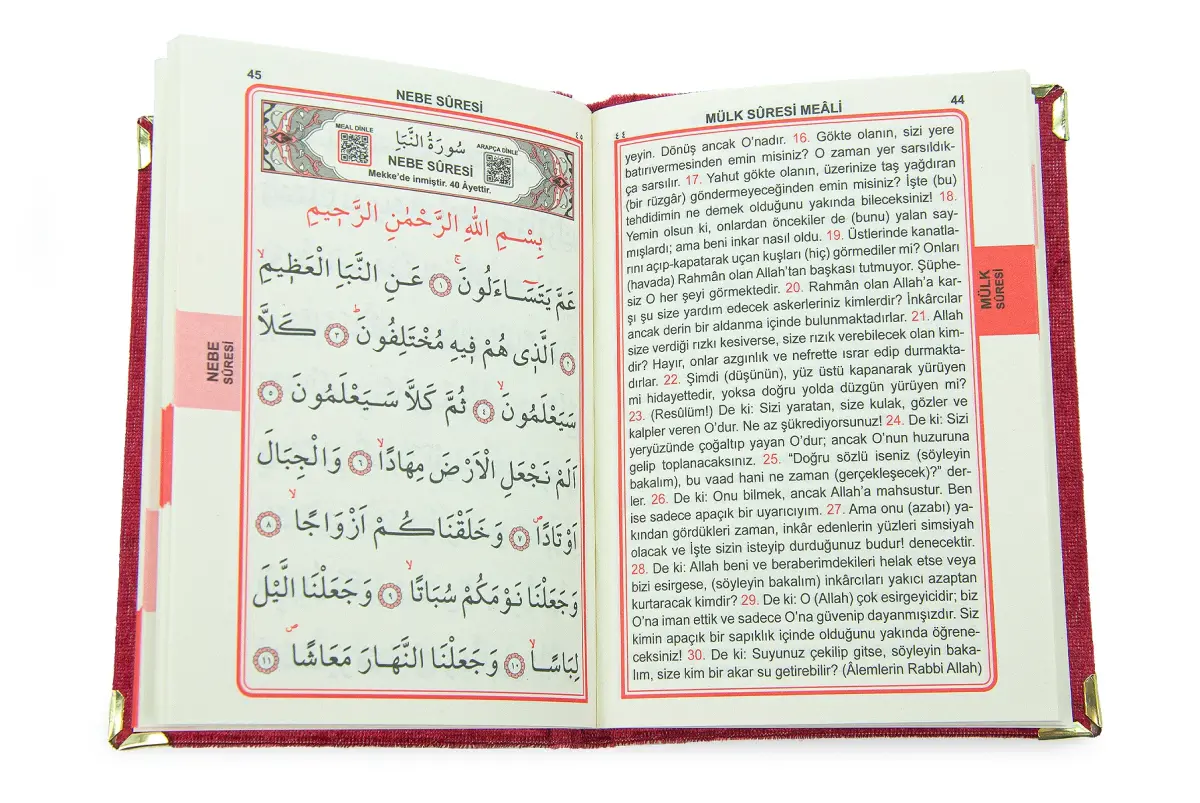 44
MÜLK SÛRESİ MEÂLİ
٤٤
yeyin. Dönüş ancak O’nadır. 16. Gökte olanın, sizi yere
batırıvermesinden emin misiniz? O zaman yer sarsıldık-
ça sarsılır. 17. Yahut gökte olanın, üzerinize taş yağdıran
(bir rüzgâr) göndermeyeceğinden emin misiniz? İşte (bu)
tehdidimin ne demek olduğunu yakında bileceksiniz! 18.
Yemin olsun ki, onlardan öncekiler de (bunu) yalan say-
mışlardı; ama beni inkar nasıl oldu. 19. Üstlerinde kanatla-
rını açıp-kapatarak uçan kuşları (hiç) görmediler mi? Onları
(havada) Rahmân olan Allah’tan başkası tutmuyor. Şüphe-
siz O her şeyi görmektedir. 20. Rahmân olan Allah’a kar-
şı şu size yardım edecek askerleriniz kimlerdir? İnkârcılar
ancak derin bir aldanma içinde bulunmaktadırlar. 21. Allah
size verdiği rızkı kesiverse, size rızık verebilecek olan kim-
dir? Hayır, onlar azgınlık ve nefrette ısrar edip durmakta-
dırlar. 22. Şimdi (düşünün), yüz üstü kapanarak yürüyen
mi hidayettedir, yoksa doğru yolda düzgün yürüyen mi?
23. (Resûlüm!) De ki: Sizi yaratan, size kulak, gözler ve
kalpler veren O’dur. Ne az şükrediyorsunuz! 24. De ki: Sizi
yeryüzünde çoğaltıp yayan O’dur; ancak O’nun huzuruna
gelip toplanacaksınız. 25. “Doğru sözlü iseniz (söyleyin
bakalım), bu vaad hani ne zaman (gerçekleşecek)?” der-
ler. 26. De ki: Onu bilmek, ancak Allah’a mahsustur. Ben
ise sadece apaçık bir uyarıcıyım. 27. Ama onu (azabı) ya-
kından gördükleri zaman, inkâr edenlerin yüzleri simsiyah
olacak ve İşte sizin isteyip durduğunuz budur! denecektir.
28. De ki: Allah beni ve beraberimdekileri helak etse veya
bizi esirgese, (söyleyin bakalım) inkârcıları yakıcı azaptan
kurtaracak kimdir? 29. De ki: O (Allah) çok esirgeyicidir; biz
O’na iman ettik ve sadece O’na güvenip dayanmışızdır. Siz
kimin apaçık bir sapıklık içinde olduğunu yakında öğrene-
ceksiniz! 30. De ki: Suyunuz çekilip gitse, söyleyin baka-
lım, size kim bir akar su getirebilir? (Âlemlerin Rabbi Allah)
MÜLK
SÛRESİ
45
NEBE SÛRESİ
٤٥
MEAL DİNLE
سُورَةُ النَّبَأِ
ARAPÇA DİNLE
NEBE SÛRESİ
Mekke’de inmiştir. 40 Âyettir.
بِسْمِ اللّٰهِ الرَّحْمٰنِ الرَّح۪يمِ
عَمَّ يَتَسَٓاءَلُونَۚ ﴿١﴾ عَنِ النَّبَأِ الْعَظ۪يمِۙ
﴿٢﴾ اَلَّذ۪ي هُمْ ف۪يهِ مُخْتَلِفُونَۜ ﴿٣﴾ كَلَّا
سَيَعْلَمُونَۙ ﴿٤﴾ ثُمَّ كَلَّا سَيَعْلَمُونَ ﴿٥﴾
اَلَمْ نَجْعَلِ الْاَرْضَ مِهَادًاۙ ﴿٦﴾ وَالْجِبَالَ
اَوْتَادًاۖ ﴿٧﴾ وَخَلَقْنَاكُمْ اَزْوَاجًاۙ ﴿٨﴾
وَجَعَلْنَا نَوْمَكُمْ سُبَاتًاۙ ﴿٩﴾ وَجَعَلْنَا الَّيْلَ
لِبَاسًاۙ ﴿١٠﴾ وَجَعَلْنَا النَّهَارَ مَعَاشًاۖ ﴿١١﴾
NEBE
SÛRESİ